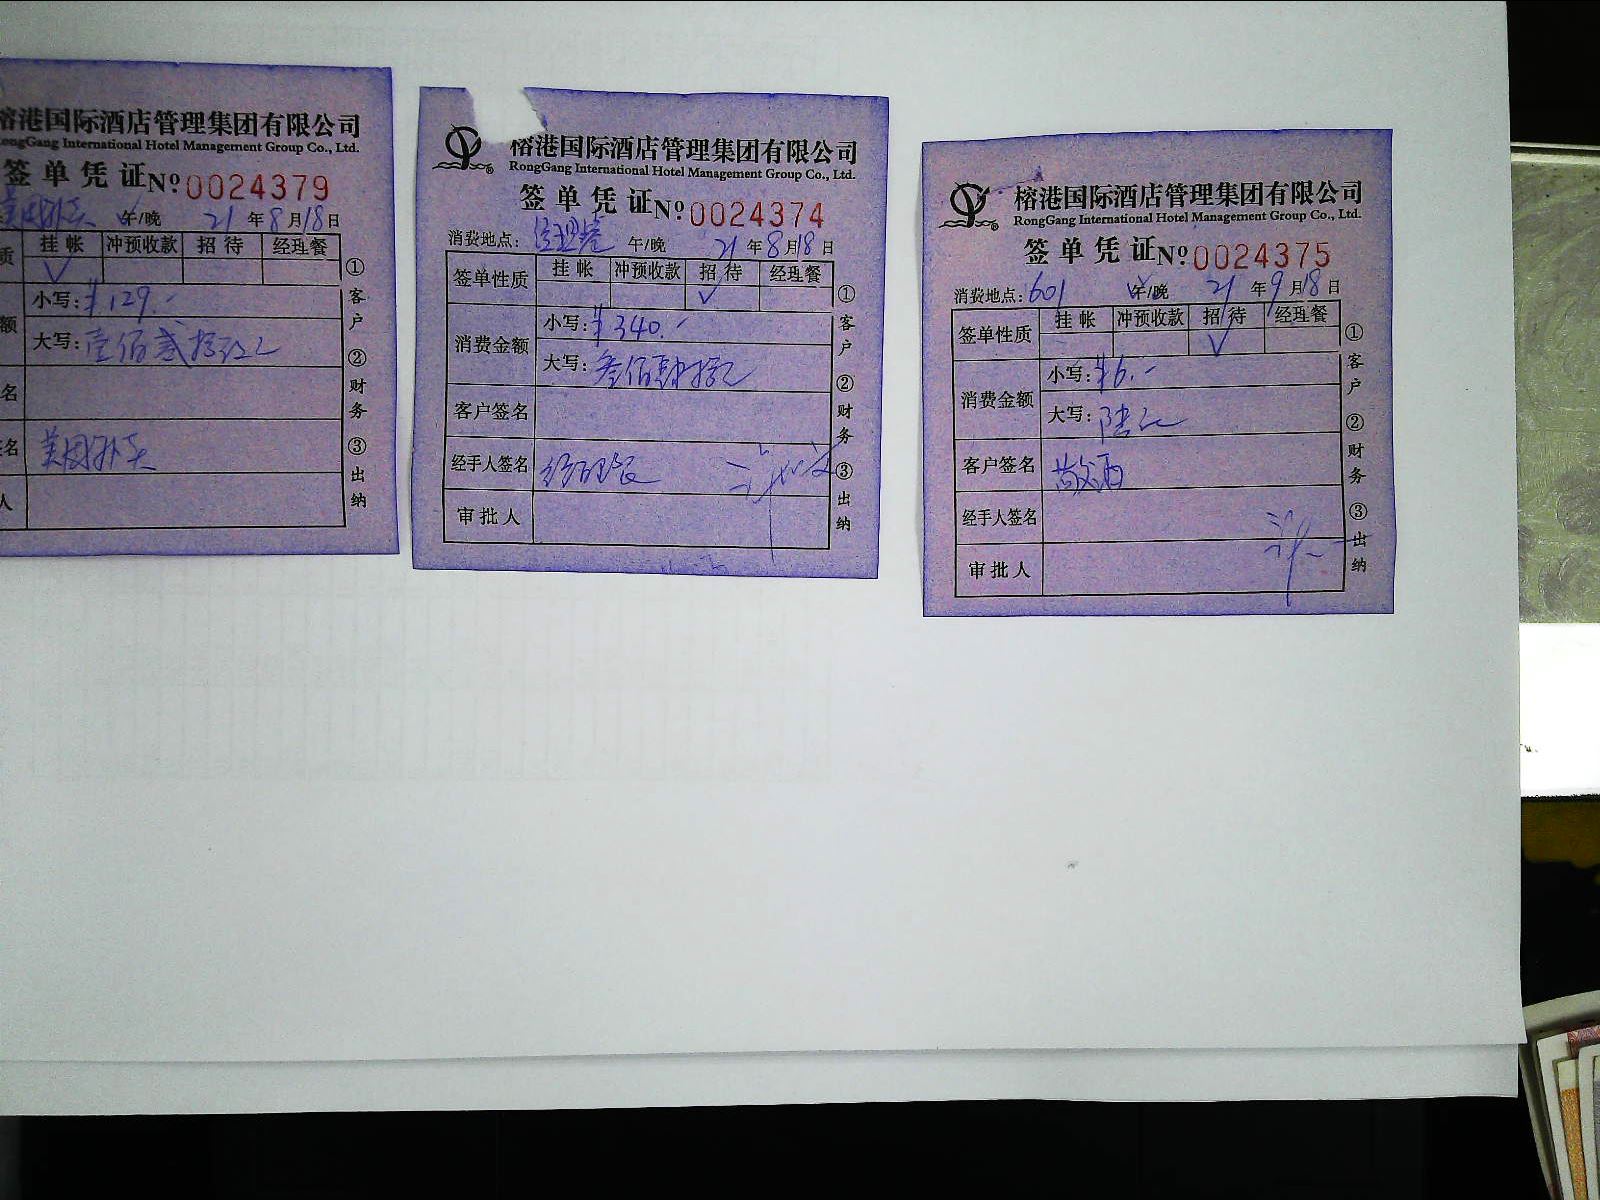 榕港国际酒店管理集团有限公司
RongGang International Hotel Management Group Co., Ltd.
签单凭证№0024379
美团外卖 午/晚 21年8月18日
质 挂帐 冲预收款 招待 经理餐
✓
额 小写:¥129.-
大写:壹佰贰拾玖元
名
签名 美团外卖
人
①客户 ②财务 ③出纳
榕港国际酒店管理集团有限公司
RongGang International Hotel Management Group Co., Ltd.
签单凭证№0024374
消费地点: 午/晚 21年8月18日
签单性质 挂帐 冲预收款 招待 经理餐
✓
消费金额 小写:¥340.-
大写:叁佰肆拾元
客户签名
经手人签名
审批人
①客户 ②财务 ③出纳
榕港国际酒店管理集团有限公司
RongGang International Hotel Management Group Co., Ltd.
签单凭证№0024375
消费地点:601 午/晚 21年9月18日
签单性质 挂帐 冲预收款 招待 经理餐
✓
消费金额 小写:¥6.-
大写:陆元
客户签名
经手人签名
审批人
①客户 ②财务 ③出纳